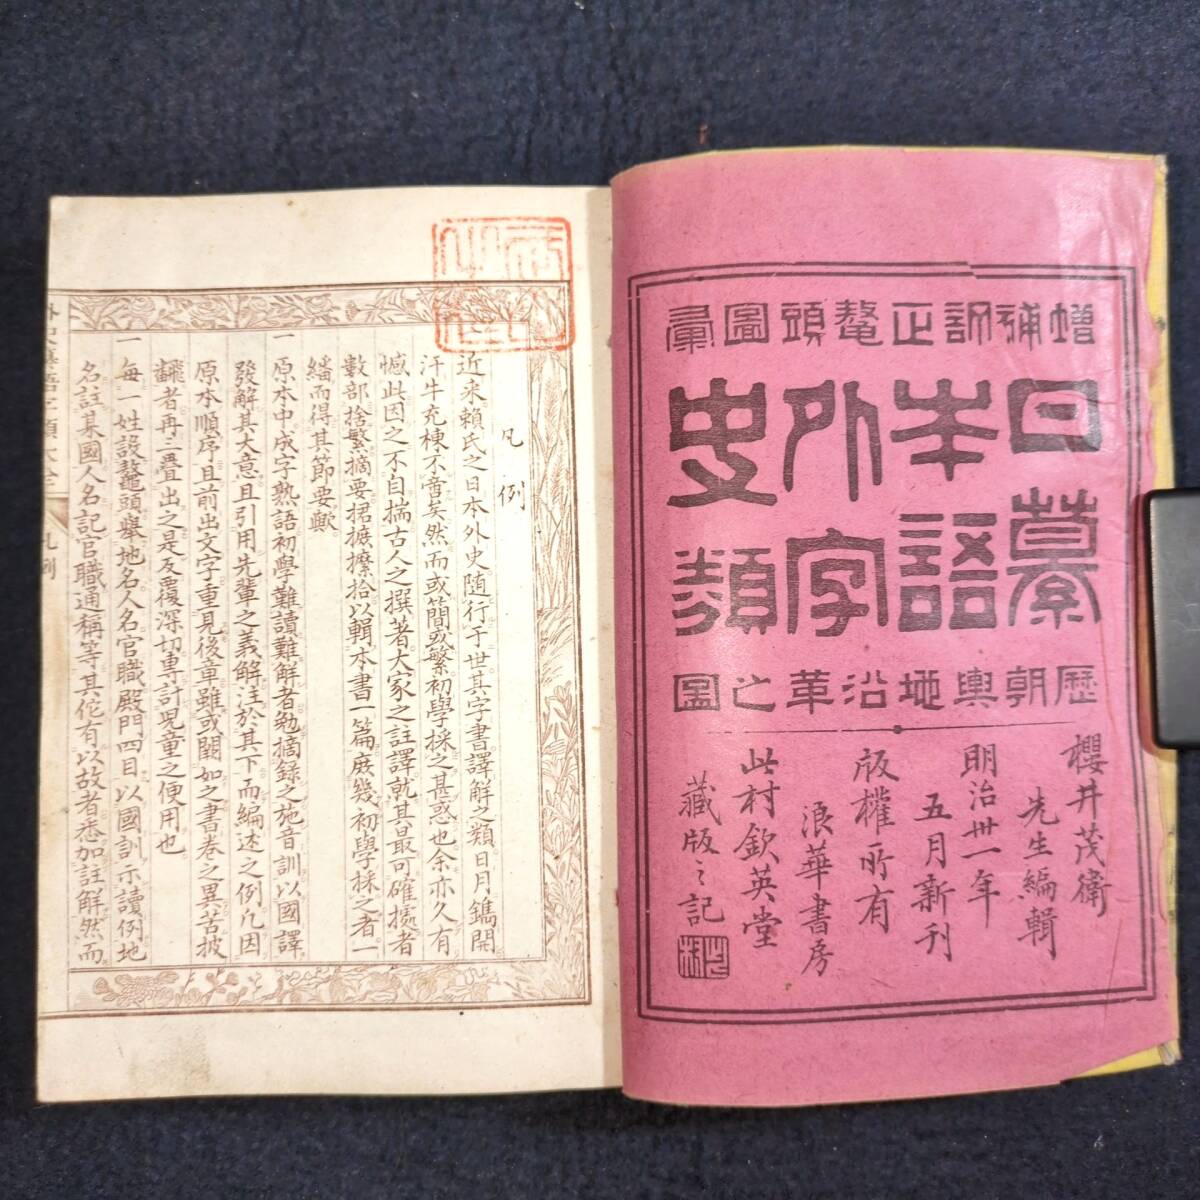 增補訂正鼇頭圖彙
日本外史
纂語字類
歷朝輿地沿革之圖
櫻井茂衛
先生編輯
明治卅一年
五月新刊
版權所有
浪華書房
此村欽英堂
藏版之記
凡例
近来頼氏之日本外史随行于世其字書譯解之類日月鐫開
汗牛充棟不啻矣然而或簡或繁初學採之甚惑也余亦久有
憾此因之不自揣古人之撰著大家之註譯就其最可確據者
數部捨繁摘要捃摭擦拾以輯本書一篇庶幾初學採之者一
繙而得其節要歟
一原本中成字熟語初學難讀難解者勉摘録之施音訓以國譯
發解其大意且引用先輩之義解注於其下而編述之例凡因
原本順序且前出文字重見後章雖或闕如之書卷之異苦披
飜者再三疊出之是反覆深切專計児童之便用也
一每一姓設鼇頭舉地名人名官職殿門四目以國訓示讀例地
名註某國人名記官職通稱等其佗有以故者悉加註解然而